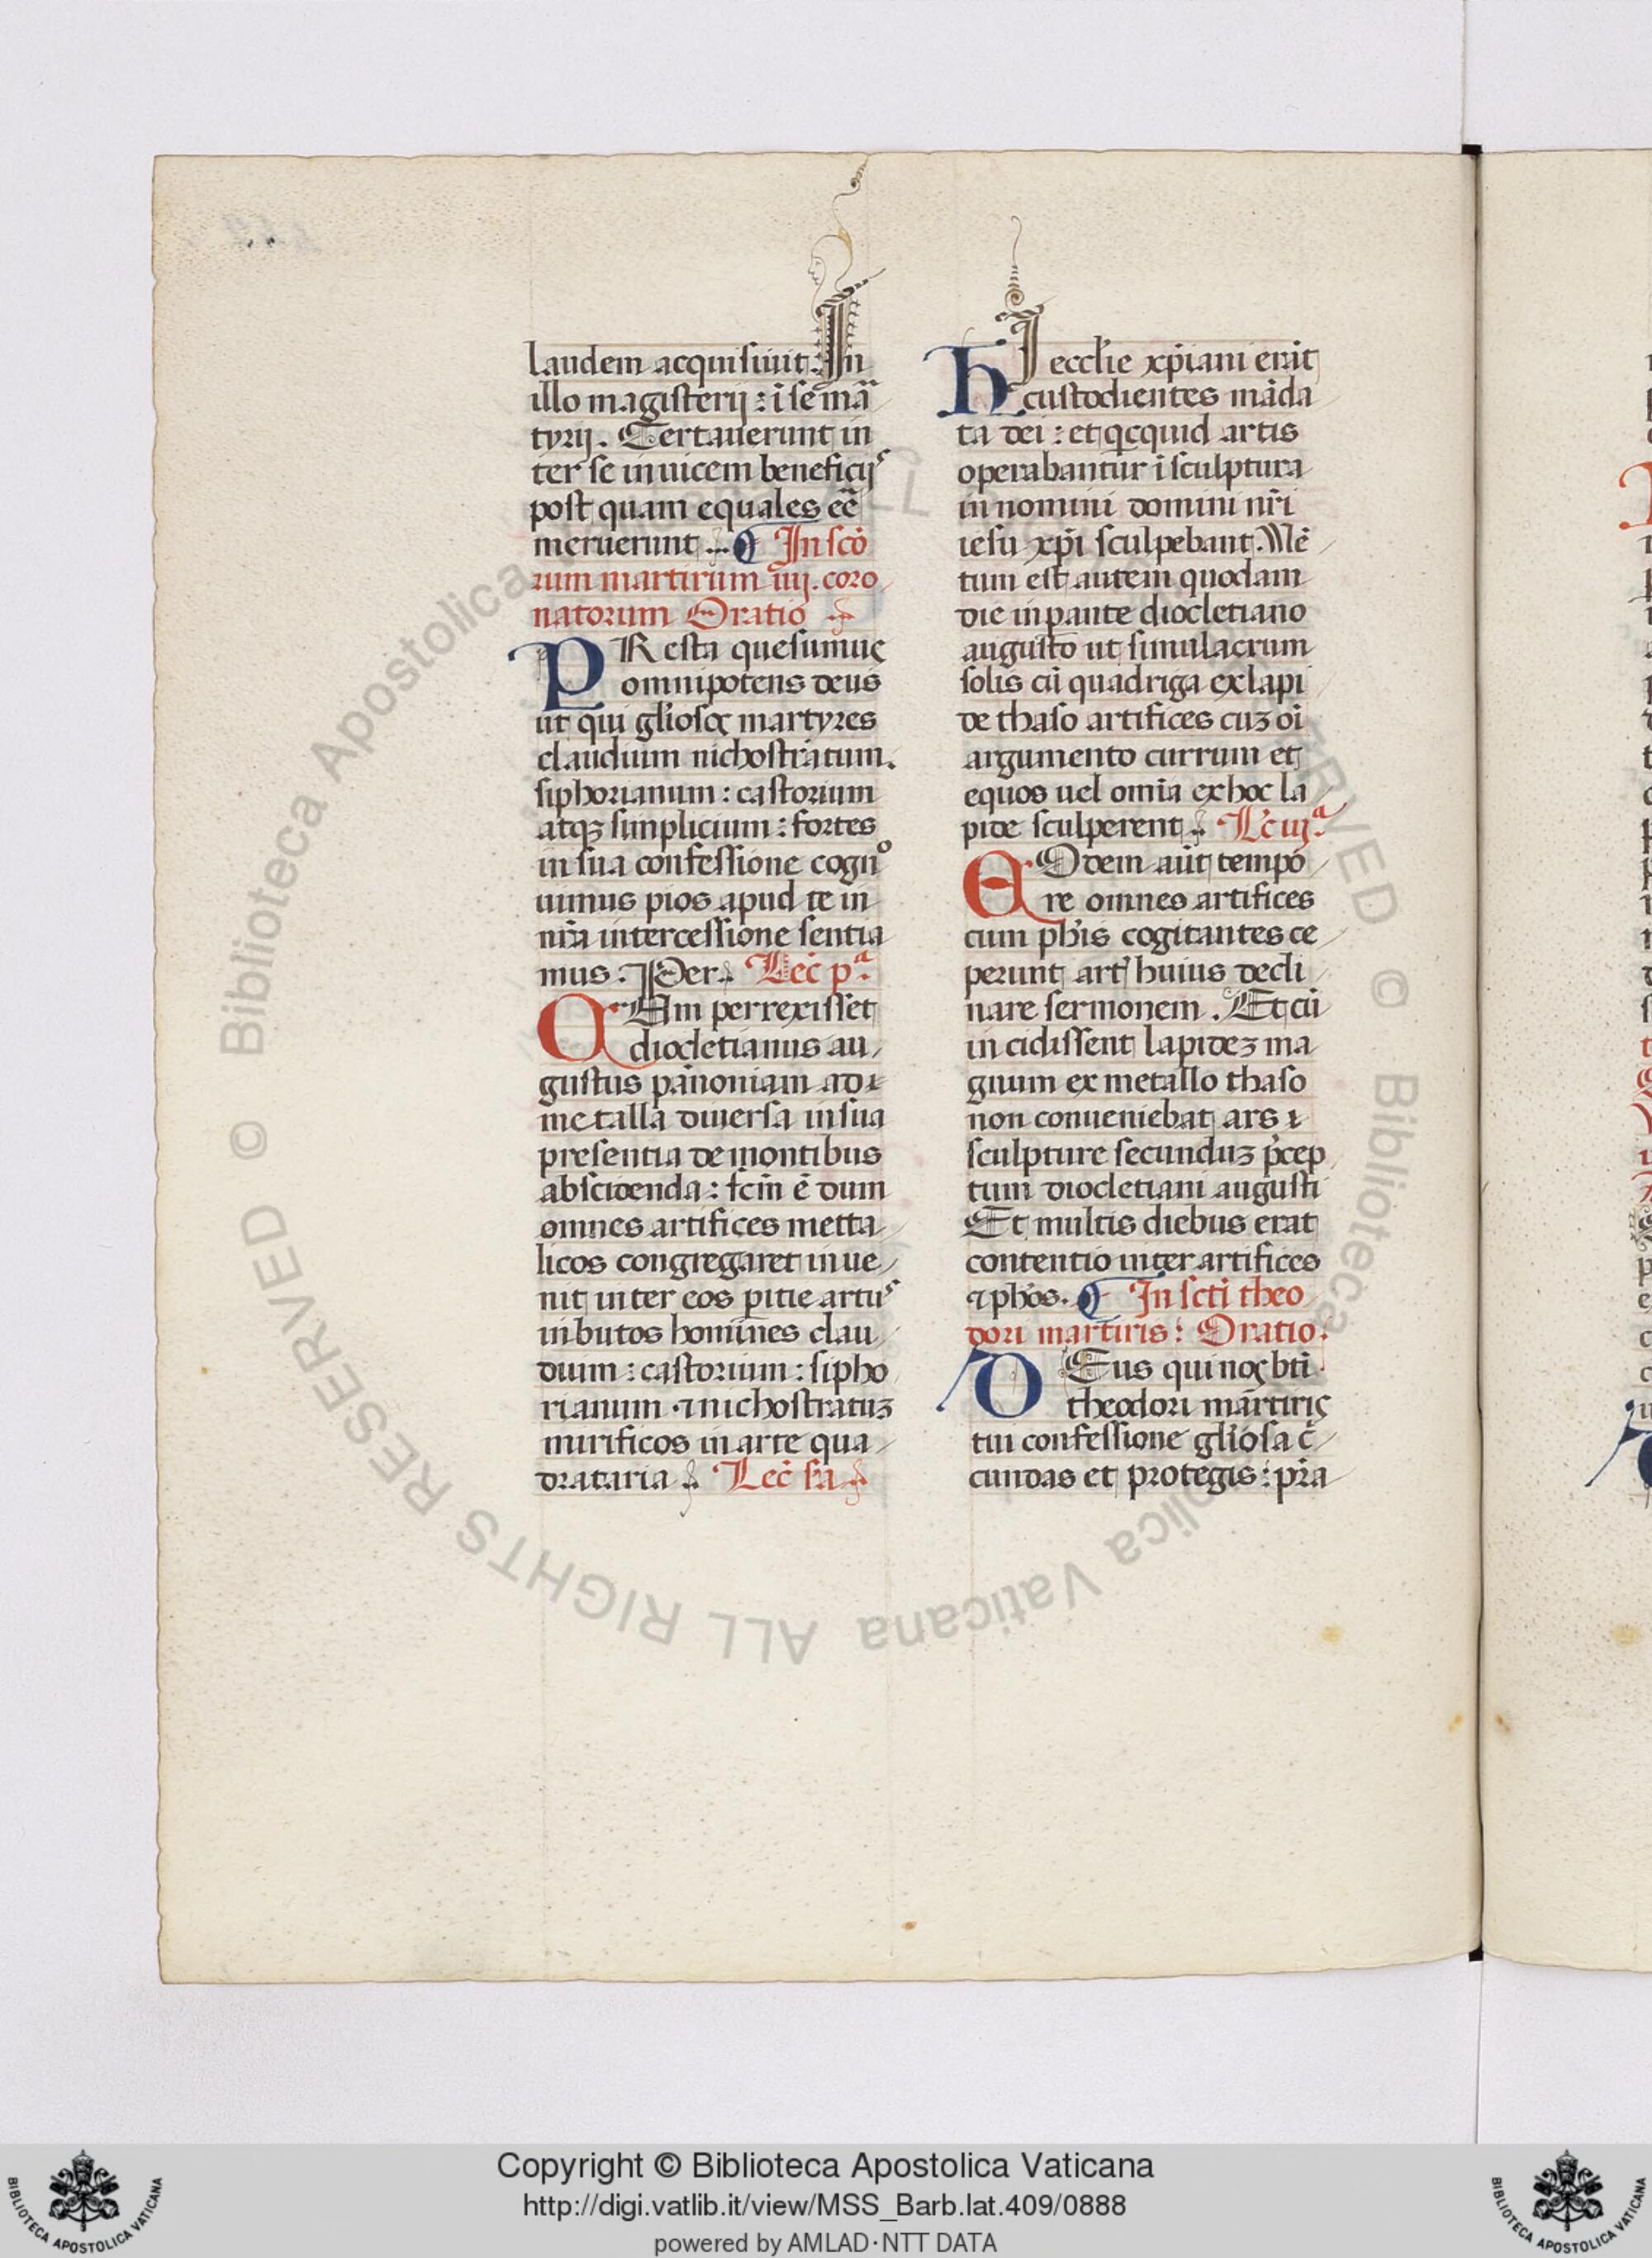 laudem acquisiuit: In
illo magisterij: ī se mā
tyrij. Certauerunt in
ter se inuicem beneficijˢ
post quam equales eē
meruerunt. ¶ In scō
rum martirum iiij. coro
natorum Oratio
PResta quesumus
omnipotens deus
ut qui gl'iosos martyres
claudium nichostratum.
siphorianum: castorium
atqꝫ simplicium: fortes
in sua confessione cognº
uimus pios apud te in
nr̄a intercessione sentia
mus. Per. Lec̄ pª.
CUm perrexisset
diocletianus au
gustus pānoniam ad
metalla diuersa in sua
presentia de montibus
abscidenda: fc̄m ē dum
omnes artifices metta
licos congregaret inue
nit inter eos pitie artiˢ
inbutos homines clau
dium: castorium: sipho
rianum ⁊ nichostratuꝫ
mirificos in arte qua
drataria. Lec̄ sc̄a
HI eccl'ie xp̄iani erāt
custodientes māda
ta dei: et qcquid artis
operabantur ī sculptura
in nomini domini nr̄i
iesu xp̄i sculpebant. Mē
tum est autem quodam
die inpante diocletiano
augusto ut simulacrum
solis cū quadriga ex lapi
de thaso artifices cuꝫ oī
argumento currum et
equos uel omīa ex hoc la
pide sculperent. Lc̄ iijª.
EOdem aūt tempo
re omnes artifices
cum ph'is cogitantes ce
perunt art' huius decli
nare sermonem. Et cū
incidissent lapideꝫ ma
gnum ex metallo thaso
non conueniebat ars
sculpture secunduꝫ p̄cep
tum diocletiani augusti
Et multis diebus erat
contentio inter artifices
⁊ ph'os. ¶ In scti theo
dori martiris: Oratio.
DEus qui nos bt̄i
theodori martiris
tui confessione gl'iosa c̄
cundas et protegis: pr̄a
Copyright © Biblioteca Apostolica Vaticana
http://digi.vatlib.it/view/MSS_Barb.lat.409/0888
powered by AMLAD·NTT DATA
BIBLIOTECA APOSTOLICA VATICANA
BIBLIOTECA APOSTOLICA VATICANA
© Biblioteca Apostolica Vaticana ALL RIGHTS RESERVED © Biblioteca Apostolica Vaticana ALL RIGHTS RESERVED